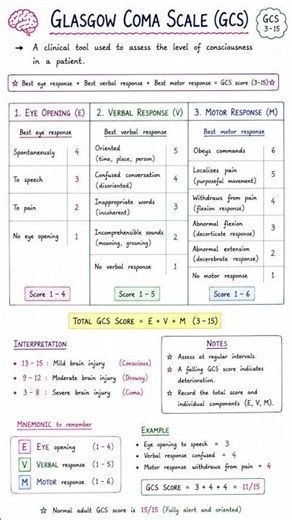 GLASGOW COMA SCALE (GCS)
GCS
3-15
→ A clinical tool used to assess the level of consciousness
in a patient.
☆ Best eye response + Best verbal response + Best motor response = GCS score (3-15) ☆
1. EYE OPENING (E)
Best eye response
Spontaneously 4
To speech 3
To pain 2
No eye opening 1
Score 1 - 4
2. VERBAL RESPONSE (V)
Best verbal response
Oriented
(time, place, person) 5
Confused conversation
(disoriented) 4
Inappropriate words
(incoherent) 3
Incomprehensible sounds
(moaning, groaning) 2
No verbal response 1
Score 1 - 5
3. MOTOR RESPONSE (M)
Best motor response
Obeys commands 6
Localizes pain
(purposeful movement) 5
Withdraws from pain
(flexion response) 4
Abnormal flexion
(decorticate response) 3
Abnormal extension
(decerebrate response) 2
No motor response 1
Score 1 - 6
TOTAL GCS SCORE = E + V + M (3-15)
INTERPRETATION
• 13 - 15 : Mild brain injury (Conscious)
• 9 - 12 : Moderate brain injury (Drowsy)
• 3 - 8 : Severe brain injury (Coma)
NOTES
☆ Assess at regular intervals.
☆ A falling GCS score indicates
deterioration.
☆ Record the total score and
individual components (E, V, M).
MNEMONIC to remember
E EYE opening (1-4)
V VERBAL response (1-5)
M MOTOR response (1-6)
EXAMPLE
• Eye opening to speech = 3
• Verbal response confused = 4
• Motor response withdraws from pain = 4
GCS SCORE = 3 + 4 + 4 = 11/15
☆ Normal adult GCS score is 15/15 (Fully alert and oriented)